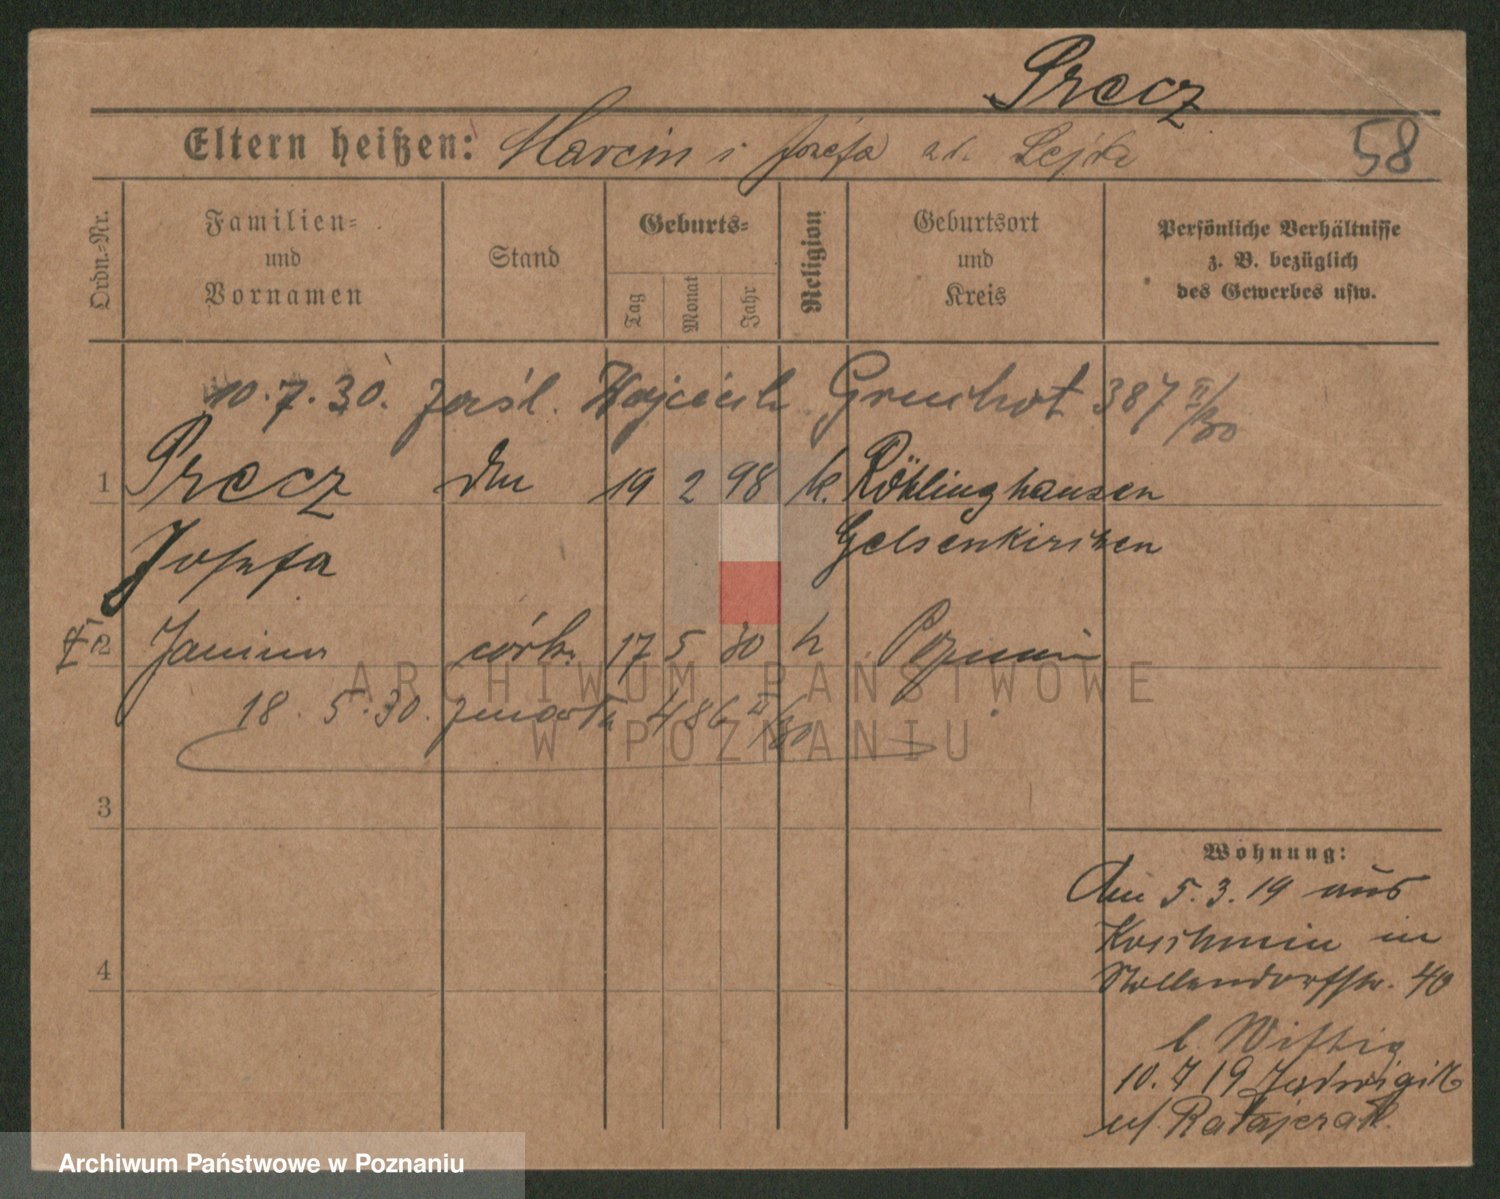 Precz
Eltern heißen: Marcin i Józefa
58
Ordn.-Nr.
Familien- und Vornamen
Stand
Geburts-
Tag
Monat
Jahr
Religion
Geburtsort und Kreis
Persönliche Verhältnisse
z. B. bezüglich
des Gewerbes usw.
10.7.30. zaśl. Wojciech 387 II/30
1 Precz 19 2 98 k. Röhlinghausen
Josefa Gelsenkirchen
2 Janina córka 17 5 30 k Poznań
18. 5. 30. zmarła 486 II/30
3
Wohnung:
Am 5.3.19 aus
Koschmin in
4
Nollendorfstr. 40
b. Wittig
10.7 19 Jadwigi 16
u/ Ratajczak
ARCHIWUM PAŃSTWOWE
W POZNANIU
Archiwum Państwowe w Poznaniu